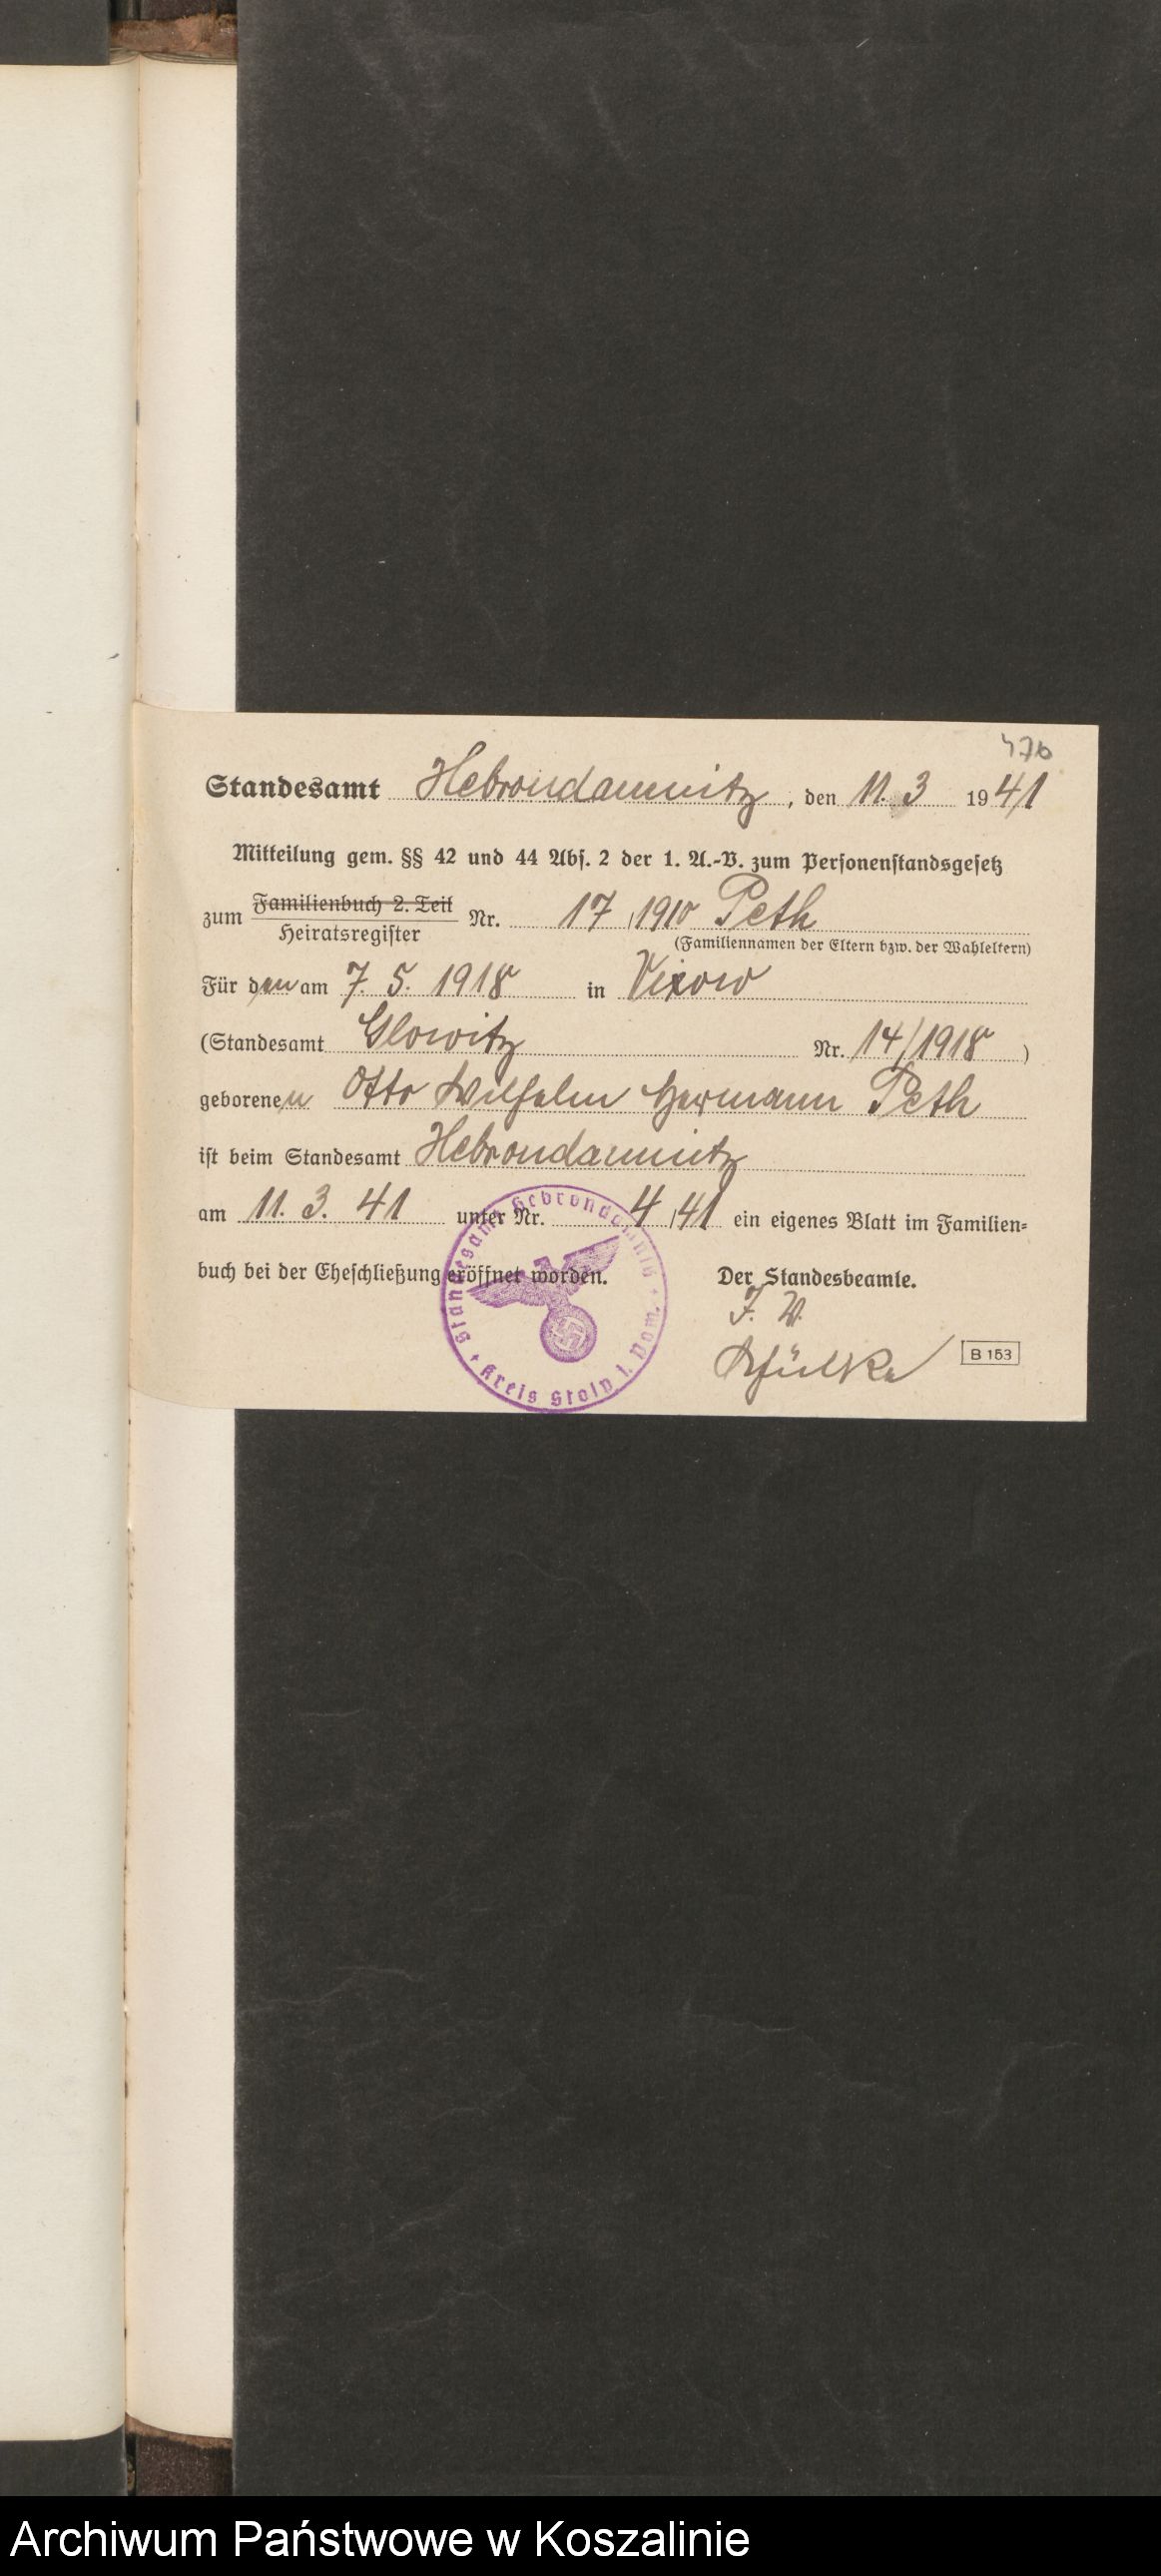 476
Standesamt Hebrondamnitz, den 11. 3 1941
Mitteilung gem. §§ 42 und 44 Abs. 2 der 1. A.-V. zum Personenstandsgesetz
zum Familienbuch 2. Teil
Heiratsregister Nr. 17/1910 Peth
(Familiennamen der Eltern bzw. der Wahleltern)
Für den am 7. 5. 1918 in Vixow
(Standesamt Glowitz Nr. 14/1918)
geborenen Otto Wilhelm Hermann Peth
ist beim Standesamt Hebrondamnitz
am 11. 3. 41 unter Nr. 4/41 ein eigenes Blatt im Familien=
buch bei der Eheschließung eröffnet worden. Der Standesbeamte.
J. V.
B 153
Standesamt Hebrondamnitz
Kreis Stolp i. Pom.
Archiwum Państwowe w Koszalinie